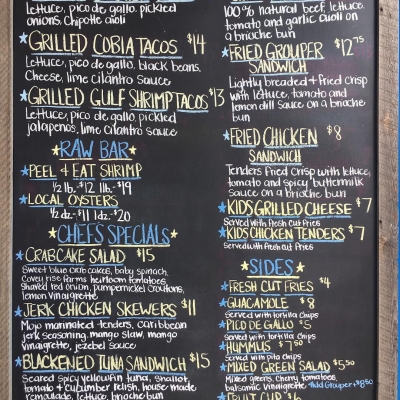 lettuce, pico de gallo, pickled
onions, Chipotle aioli
GRILLED COBIA TACOS $14
Lettuce, pico de gallo, black beans,
Cheese, lime cilantro sauce
GRILLED GULF SHRIMP TACOS $13
Lettuce, pico de gallo, pickled
jalapenos, lime cilantro sauce
RAW BAR
PEEL & EAT SHRIMP
1/2 lb.-$12 1lb.-$19
LOCAL OYSTERS
1/2 dz.-$11 1dz.-$20
CHEFS SPECIALS
CRABCAKE SALAD $15
Sweet blue crab cakes, baby spinach,
Covey rise farms heirloom tomatoes,
Shaved red onion, pumpernickel croutons,
lemon vinaigrette
JERK CHICKEN SKEWERS $11
Mojo marinated tenders, caribbean
jerk seasoning, mango slaw, mango
vinaigrette, jezebel sauce
BLACKENED TUNA SANDWICH $15
Seared spicy yellowfin tuna, shallot,
tomato + cucumber relish, house made
remoulade, lettuce, brioche bun
100% natural beef, lettuce,
tomato and garlic aioli on
a brioche bun
FRIED GROUPER $12.75
SANDWICH
Lightly breaded & Fried Crisp
with lettuce, tomato and
lemon dill sauce on a brioche
bun
FRIED CHICKEN $8
SANDWICH
Tenders Fried Crisp with lettuce,
tomato and spicy buttermilk
sauce on a brioche bun
KIDS GRILLED CHEESE $7
Served with Fresh Cut Fries
KIDS CHICKEN TENDERS $7
Served with Fresh Cut Fries
SIDES
FRESH CUT FRIES $4
GUACAMOLE $8
Served with tortilla chips
PICO DE GALLO $5
Served with tortilla chips
HUMMUS $7.50
Served with pita chips
MIXED GREEN SALAD $5.50
Mixed greens, Cherry tomatoes,
balsamic vinaigrette *Add Grouper+$8.50
FRUIT CUP $6